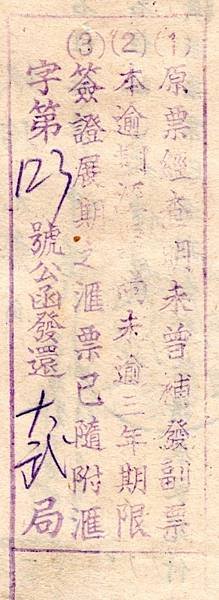 (1)原票經查明未曾補發副票
(2)本逾期滙 尚未逾三年期限
(3)簽證展期之滙票已隨附滙
字第123號公函發還 局